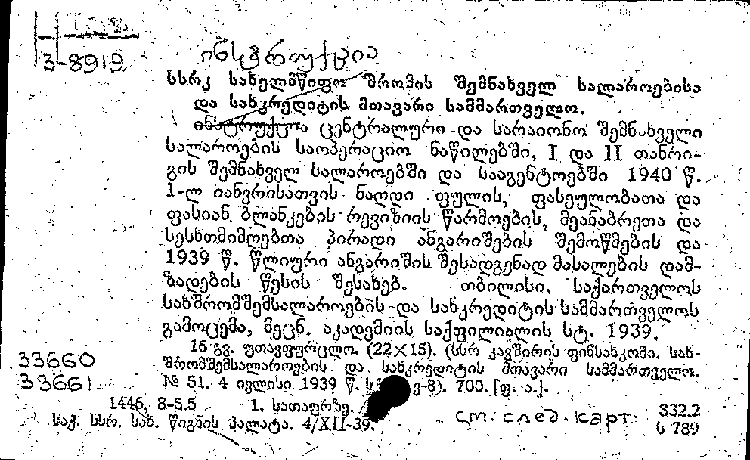 3-8919
ინსტრუქცია
სსრკ სახელმწიფო შრომის შემნახველ სალაროებისა
და სახკრედიტის მთავარი სამმართველო.
ინსტრუქცია ცენტრალური და სარაიონო შემნახველი
სალაროების საოპერაციო ნაწილებში, I და II თანრი-
გის შემნახველ სალაროებში და სააგენტოებში 1940 წ.
1-ლ იანვრისათვის ნაღდი ფულის, ფასეულობათა და
ფასიან ბლანკების რევიზიის წარმოების, მეანაბრეთა და
სესხთმიმღებთა პირადი ანგარიშების შემოწმების და
1939 წ. წლიური ანგარიშის შესადგენად მასალების დამ-
ზადების წესის შესახებ. თბილისი, საქართველოს
სახშრომშემსალაროების და სახკრედიტის სამმართველოს
გამოცემა, მეცნ. აკადემიის საქფილიალის სტ. 1939.
16 გვ. უთავფურცლო. (22×15). (სსრ კავშირის ფინსახკომი. სახ-
შრომშემსალაროების და სახკრედიტის მთავარი სამმართველო.
№ 51. 4 ივლისი 1939 წ. 700. [ფ. ა.].
33660
33661
1446, 8-5.5 1. სათაურზე.
საქ. სსრ. სახ. წიგნის პალატა. 4/XII-39.
см. след. карт.
332.2
ი 789